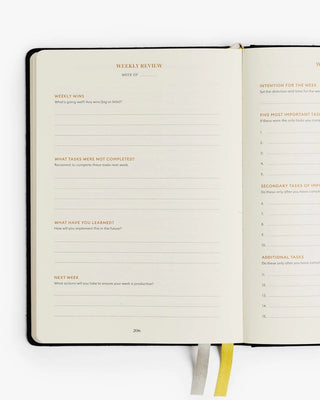 WEEKLY REVIEW
WEEK OF
WEEKLY WINS
What's going well? Any wins (big or little)?
WHAT TASKS WERE NOT COMPLETED?
Recommit to complete these tasks next week.
WHAT HAVE YOU LEARNED?
How will you implement this in the future?
NEXT WEEK
What actions will you take to ensure your week is productive?
206
W
INTENTION FOR THE WEEK
Set the direction and tone for the
FIVE MOST IMPORTANT TAS
If these were the only tasks you
1.
2.
3.
4.
5.
SECONDARY TASKS OF IMP
Do these only after you more
6.
7.
8.
9.
10.
ADDITIONAL TASKS
Do these only after you more
11.
12.
13.
14.
15.